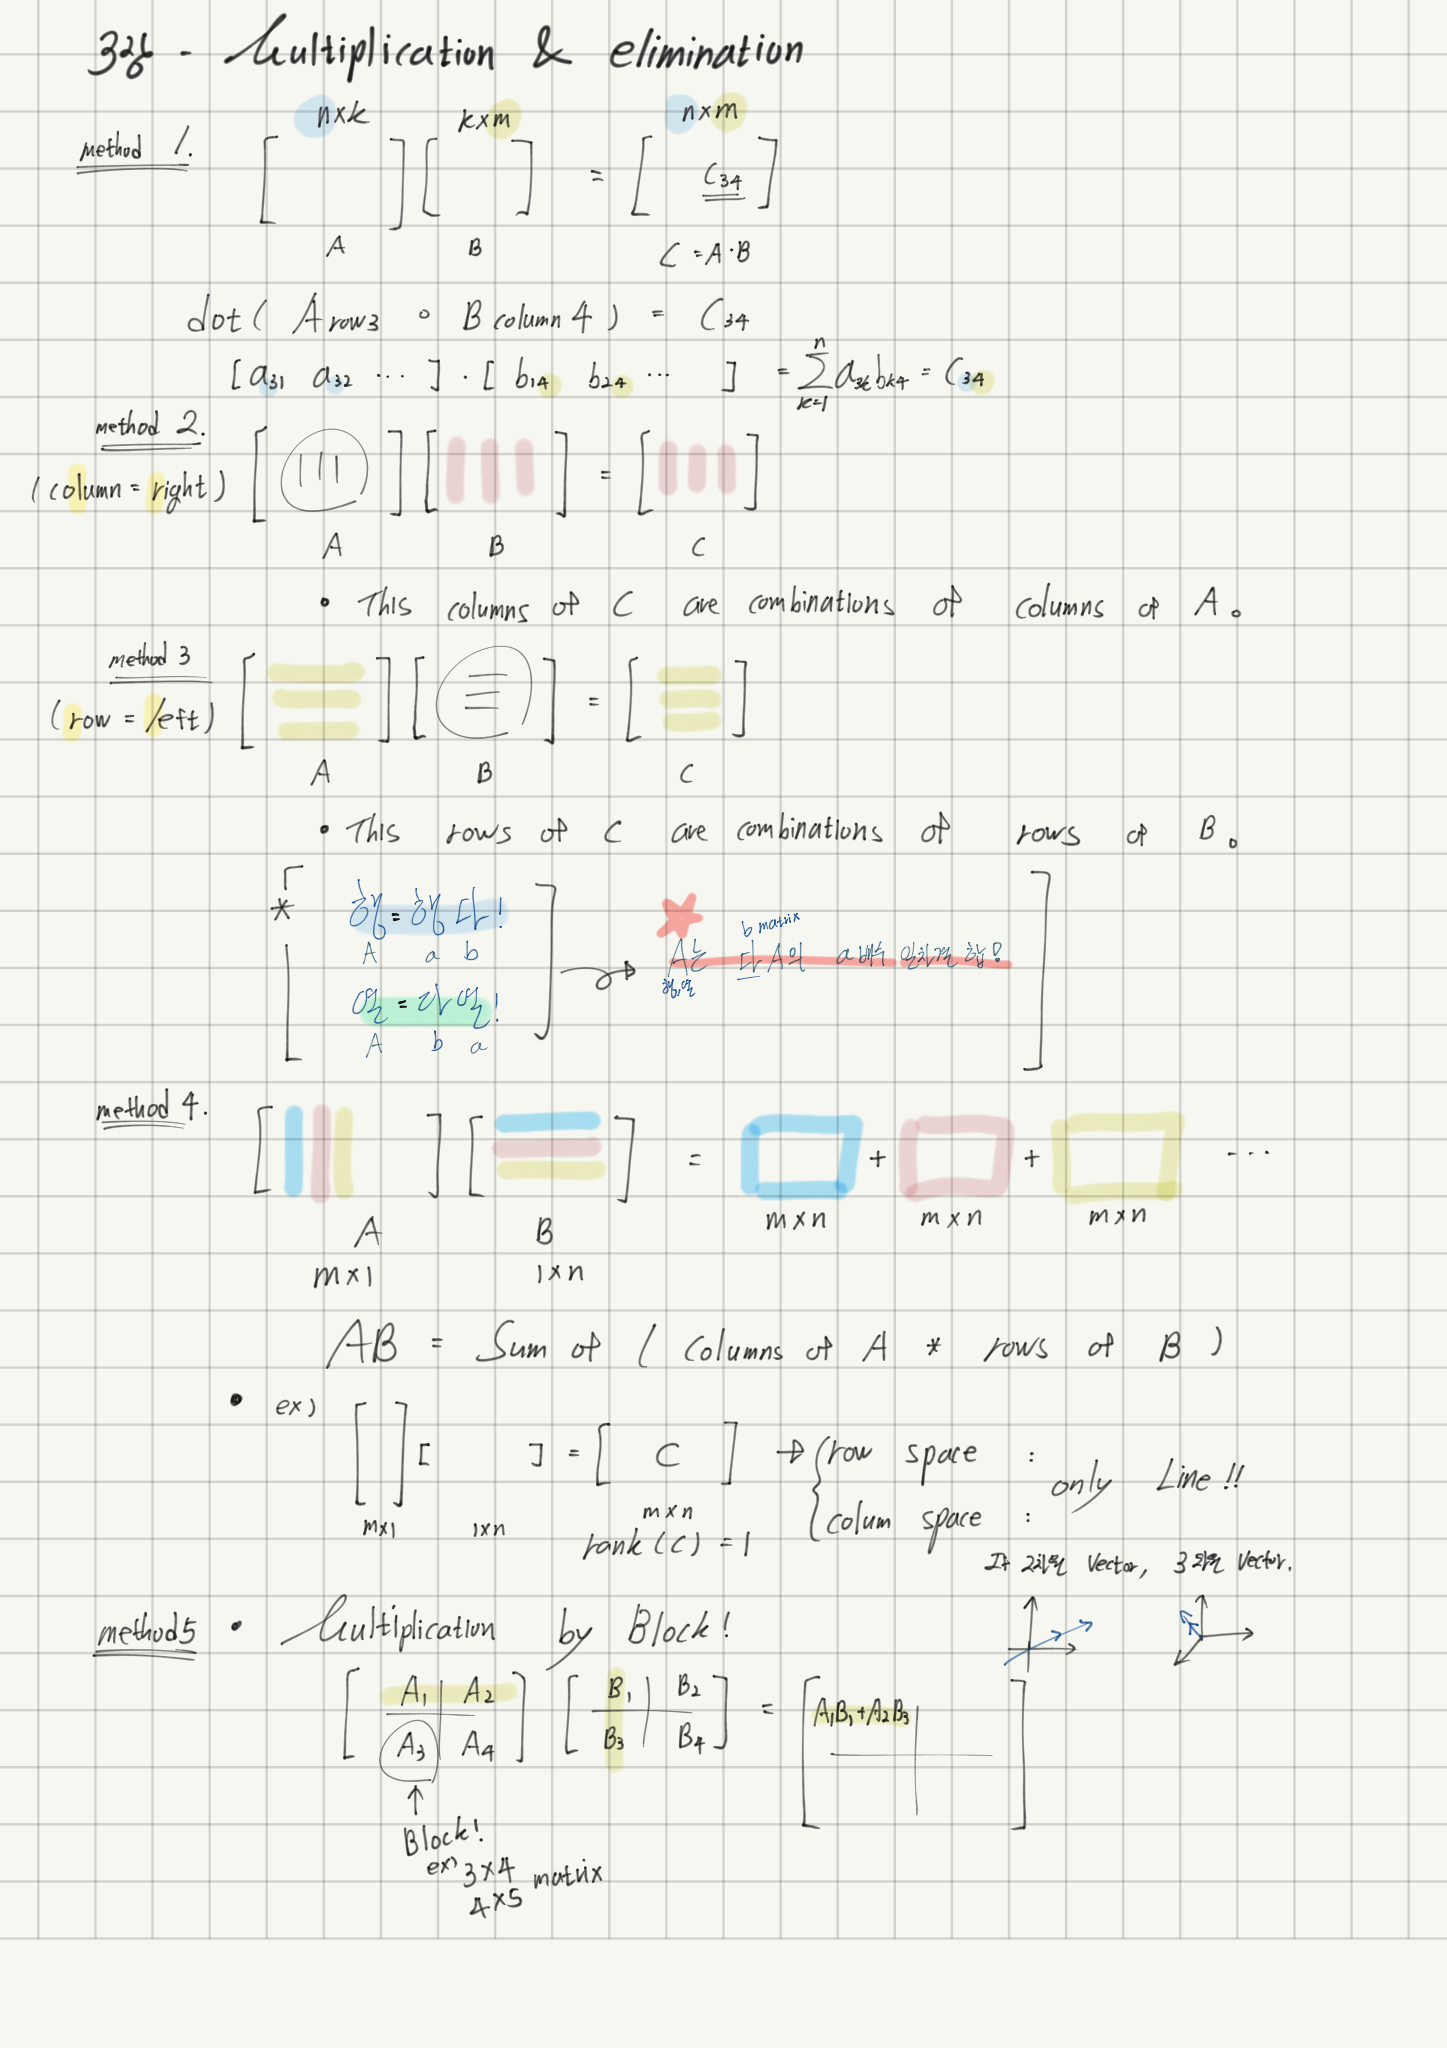 3강 - Multiplication & elimination
n×k k×m n×m
method 1. [ ] [ ] = [ C34 ]
A B C = A·B
dot( A row3 ∘ B column 4 ) = C34
[ a31 a32 ··· ] · [ b14 b24 ··· ] = Σ n k=1 a3k bk4 = C34
method 2.
(column = right) [ ] [ ] = [ ]
A B C
• This columns of C are combinations of columns of A.
method 3
(row = left) [ ] [ ] = [ ]
A B C
• This rows of C are combinations of rows of B.
* 행 = 행 다!
A a b
열 = 다 열!
A b a
b matrix
A는 다 A의 a배수 일차결합!
행,열
method 4. [ ] [ ] = + + ···
m×n m×n m×n
A B
m×1 1×n
AB = Sum of ( columns of A * rows of B )
• ex) [ ] [ ] = [ C ] → { row space : only Line!!
colum space :
m×1 1×n m×n
rank(C) = 1
If 2차원 Vector, 3차원 Vector.
method5 • Multiplication by Block!
[ A1 A2 ] [ B1 B2 ] = [ A1B1+A2B3 ]
A3 A4 B3 B4
↑
Block!
ex) 3×4 matrix
4×5